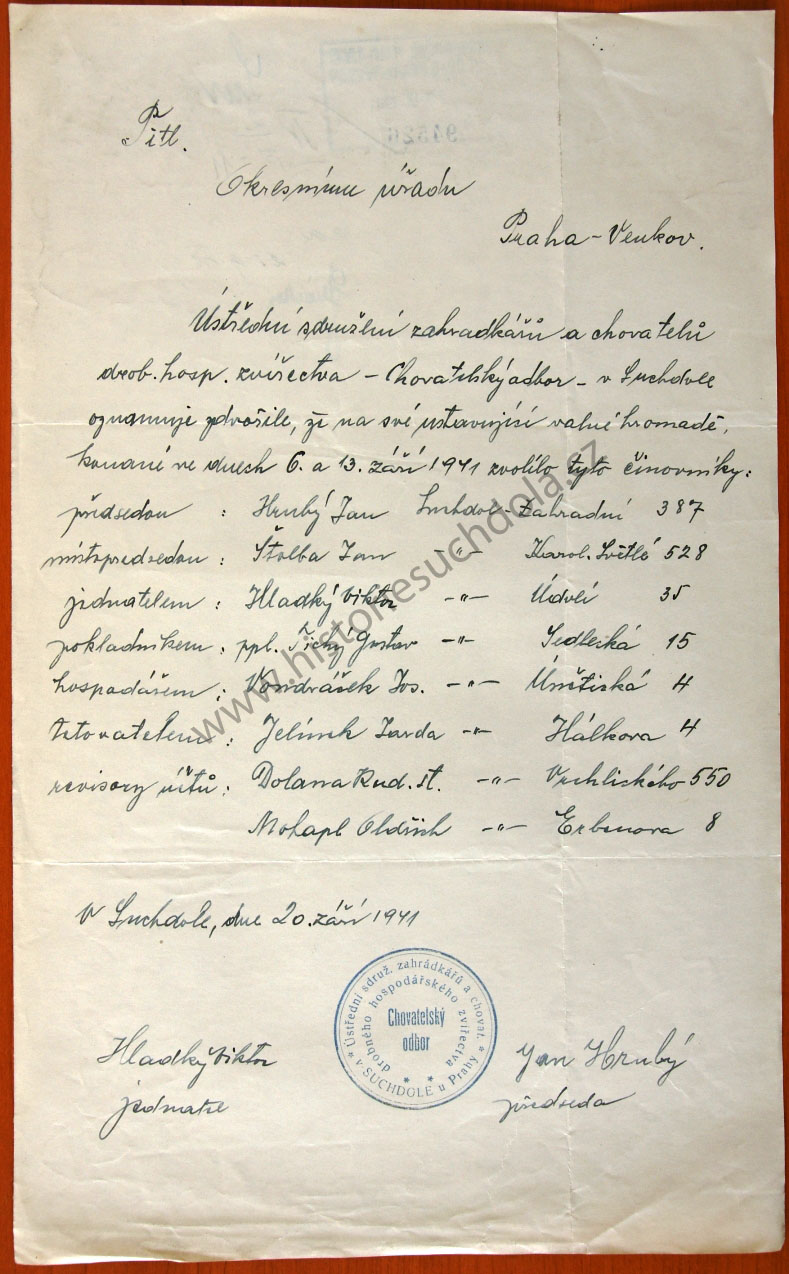 Titl.
Okresnímu úřadu
Praha - Venkov.
Ústřední sdružení zahradkářů a chovatelů
drob. hosp. zvířectva - Chovatelský odbor - v Suchdole
oznamuje zdvořile, že na své ustavující valné hromadě,
konané ve dnech 6. a 13. září 1941 zvolilo tyto činovníky:
předsedou : Hrubý Jan Suchdol - Zahradní 387
místopředsedou : Štolba Jan -"- Karol. Světlé 528
jednatelem : Hladký Viktor -"- Údolí 35
pokladníkem : ppl. Tichý Gustav -"- Sedlecká 15
hospodářem : Vondrášek Jos. -"- Únětická 4
tetovatelem : Jelínek Jarda -"- Hálkova 4
revisory účtů : Dolana Rud. st. -"- Vrchlického 550
Mohapl Oldřich -"- Erbenova 8
V Suchdole, dne 20. září 1941
Ústřední sdruž. zahrádkářů a chovat.
drobného hospodářského zvířectva
v SUCHDOLE u Prahy
Chovatelský
odbor
Hladký Viktor
jednatel
Jan Hrubý
předseda
www.historiesuchdola.cz